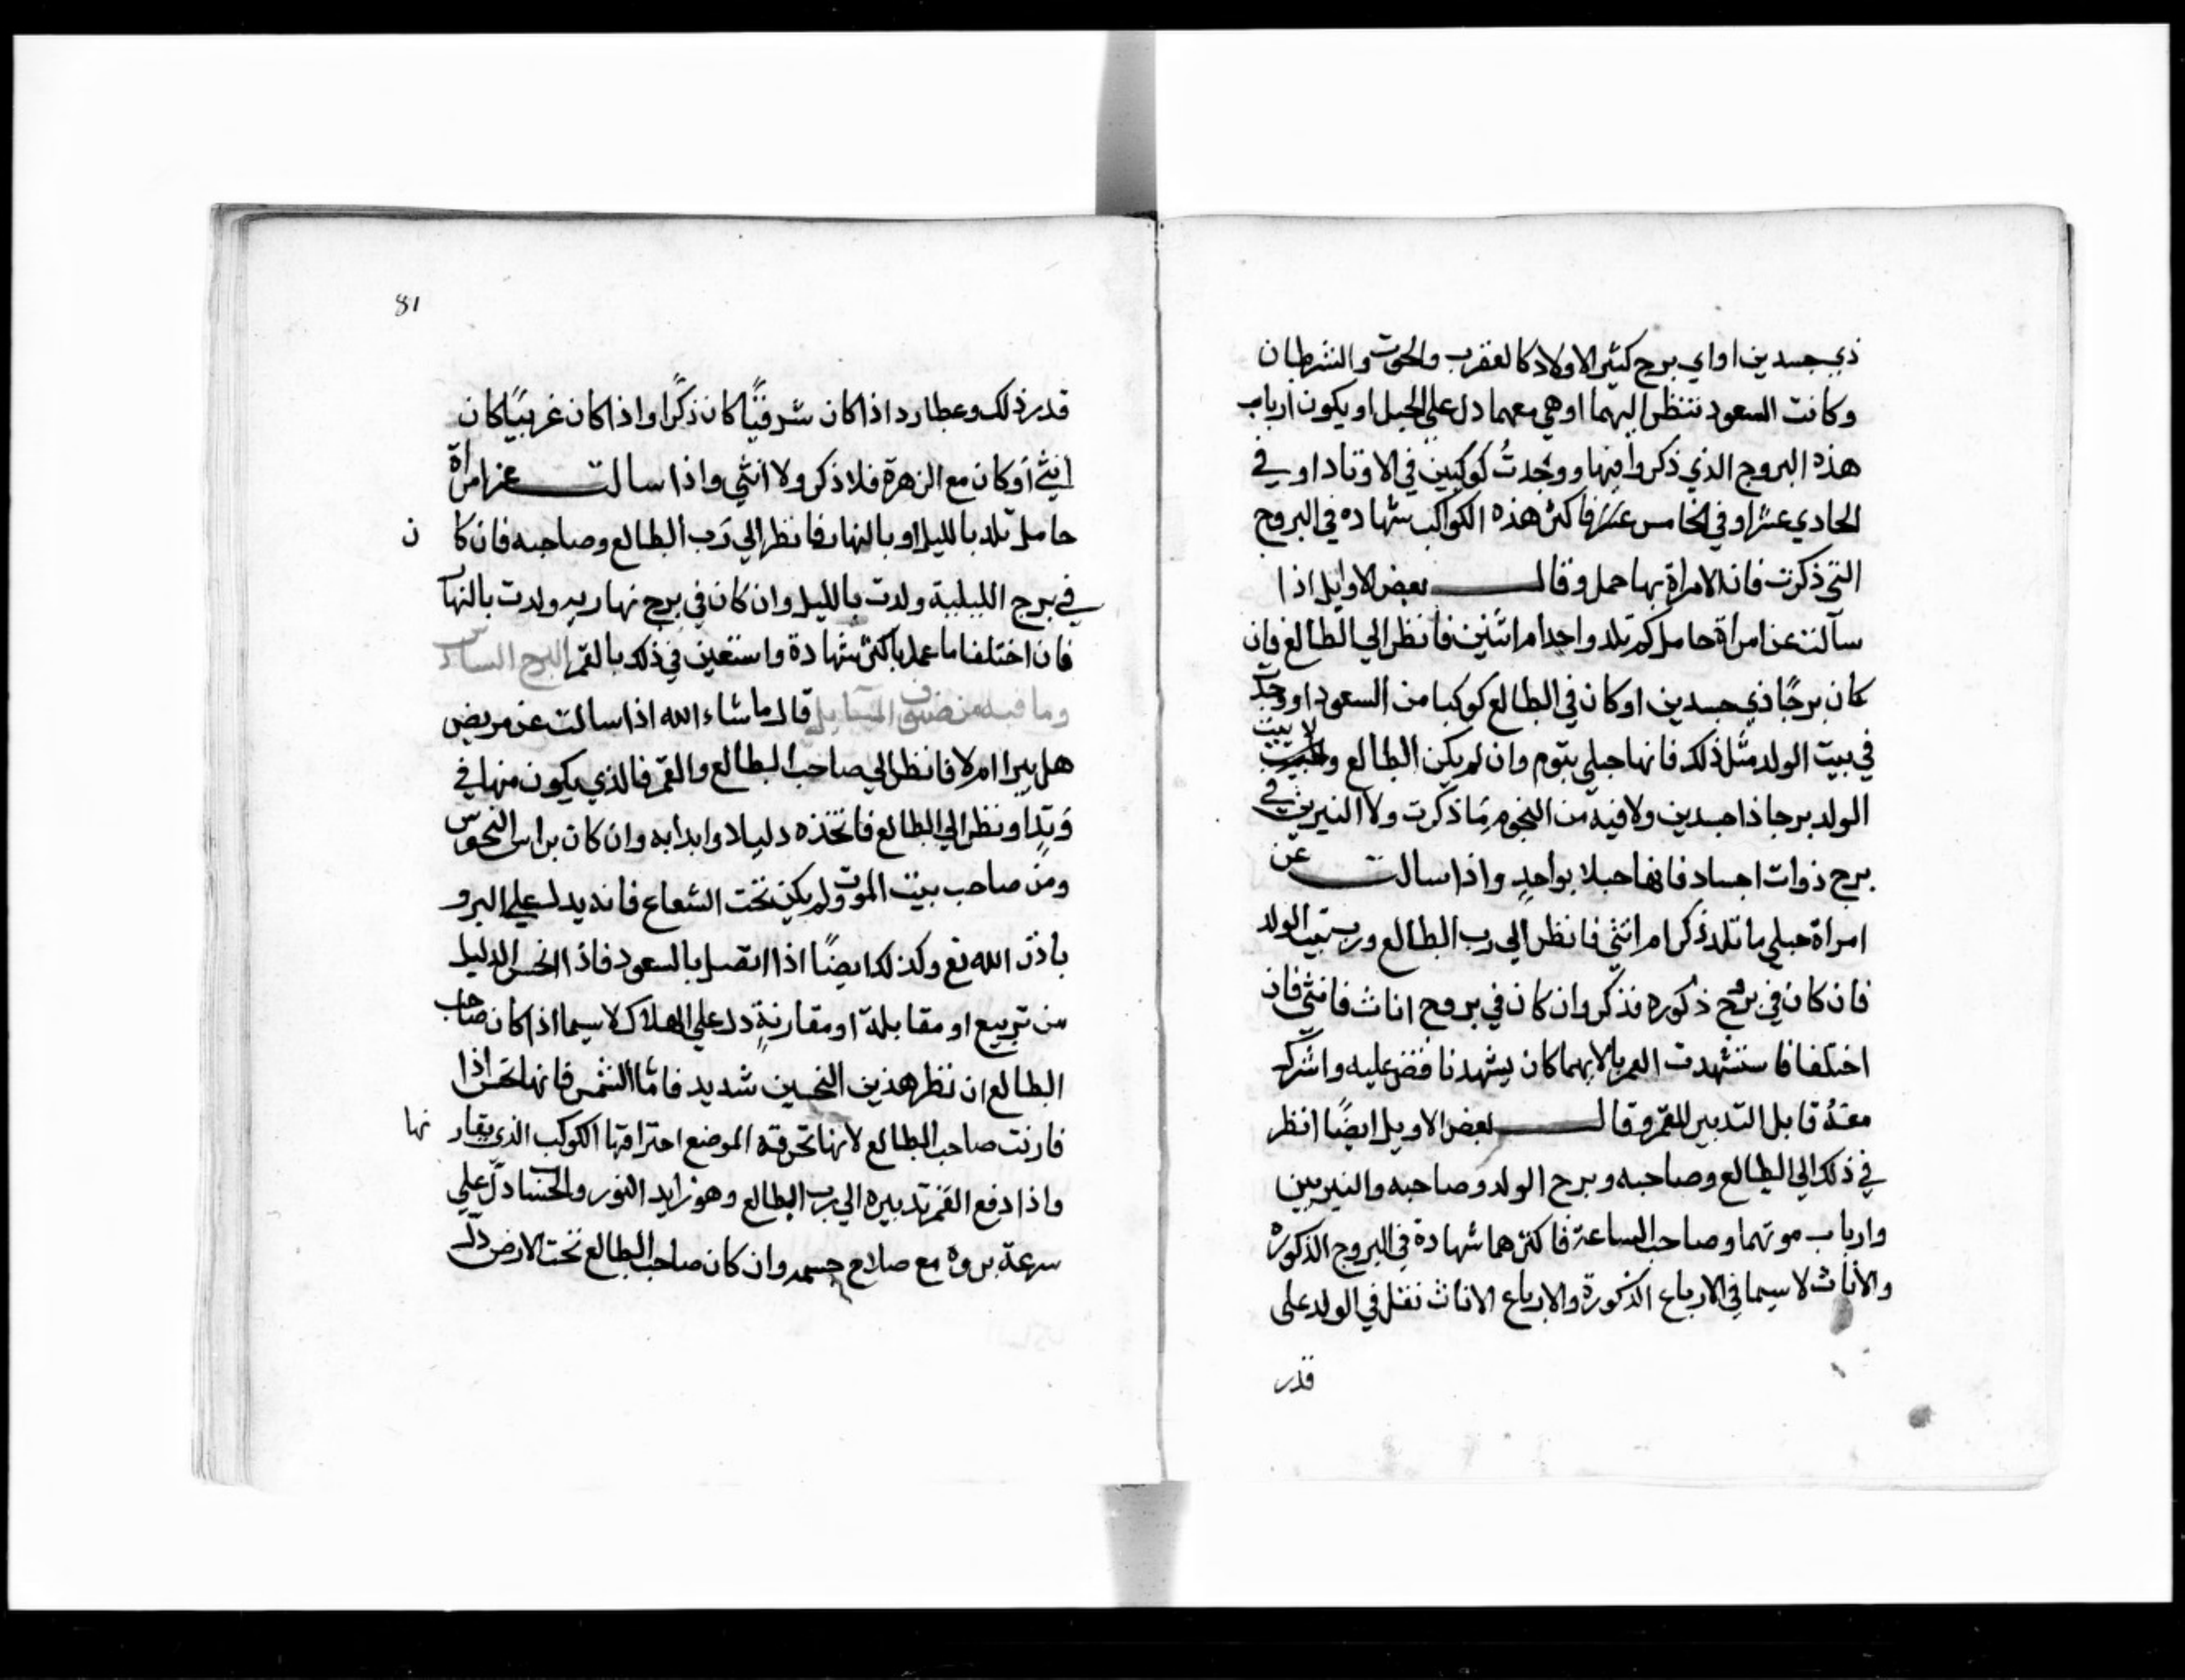 ذي جسدين او اي برج كثير الاولاد كالعقرب والحوت والسرطان
وكانت السعود تنظر اليهما او هي معهما دل علي الحبل او يكون ارباب
هذه البروج الذي ذكروا فيها ووجدت كوكبين في الاوتاد او في
الحادي عشر او في الخامس عشر فاكثر هذه الكواكب شهاده في البروج
التي ذكرت فان الامراة بها حمل وقال بعض الاوايل اذا
سآلت عن امراة حامل كم تلد واحد ام اثنين فانظر الي الطالع فان
كان برجًا ذي جسدين او كان في الطالع كوكبا من السعود او وجدت
في بيت الولد مثل ذلك فانها حبلي بتوم وان لم يكن الطالع ولا بيت
الولد برجا ذا جسدين ولا فيه من النجوم ما ذكرت ولا النيرين في
برج ذوات اجساد فانها حبلا بواحدٍ واذا سالت عن
امراة حبلي ما تلد ذكرا م انثي فانظر الي رب الطالع ورب بيت الولد
فان كان في برج ذكوره فذكر وان كان في بروج اناث فانثي فان
اختلفا فاستشهدت القمر بالايهما كان يشهدنا فقض عليه واشرك
معهُ قابل التدبير للقمر وقال بعض الاويل ايضًا انظر
في ذلك الي الطالع وصاحبه وبرج الولد وصاحبه والنيريين
وارباب موتهما وصاحب الساعة فاكثرها شهادة في البروج الذكوره
والاناث لا سيما في الارباع الذكورة والارباع الاناث نقل في الولد علي
قدر
81
قدر ذلك وعطارد اذا كان شرقيًا كان ذكرًا واذا كان غربيًا كان
انثي او كان مع الزهرة فلا ذكر ولا انثي واذا سالت عن امراة
حامل تلد بالليل او بالنهار فانظر الي رب الطالع وصاحبه فان كا ن
في برج الليلية ولدت بالليل وان كان في برج نهاريه ولدت بالنهار
فان اختلفا ما عمل باكثر شهادة واستعين في ذلك بالقمر البرج السادس
وما فيه من صنوف المسايل قال ما شاء الله اذا سالت عن مريض
هل يبرا ام لا فانظر الي صاحب الطالع والقمر فالذي يكون منها في
وتدٍ او نظر الي الطالع فاتخذه دليلا وابدا به وان كان براس النحوس
ومن صاحب بيت الموت ولم يكن تحت الشعاع فانه يدل علي البرو
باذن الله تع وكذلك ايضًا اذا اتصل بالسعود فاذا انحس الدليل
من تربيع او مقابلة او مقارنةٍ دل علي الهلاك لا سيما اذا كان صاحب
الطالع ان نظر هذين النحسين شديد فامّا الشمس فانها تحس اذا
قارنت صاحب الطالع لانها تحرقه الموضع احتراقها الكوكب الذي يقار نها
واذا دفع القمر تدبيره الي رب الطالع وهو زايد النور والحساب دل علي
سرعة بروه مع صلاح جسمه وان كان صاحب الطالع تحت الارض دل